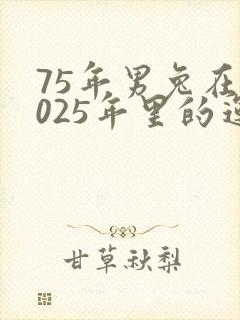 75年男兔在
025年里的
甘草秋梨